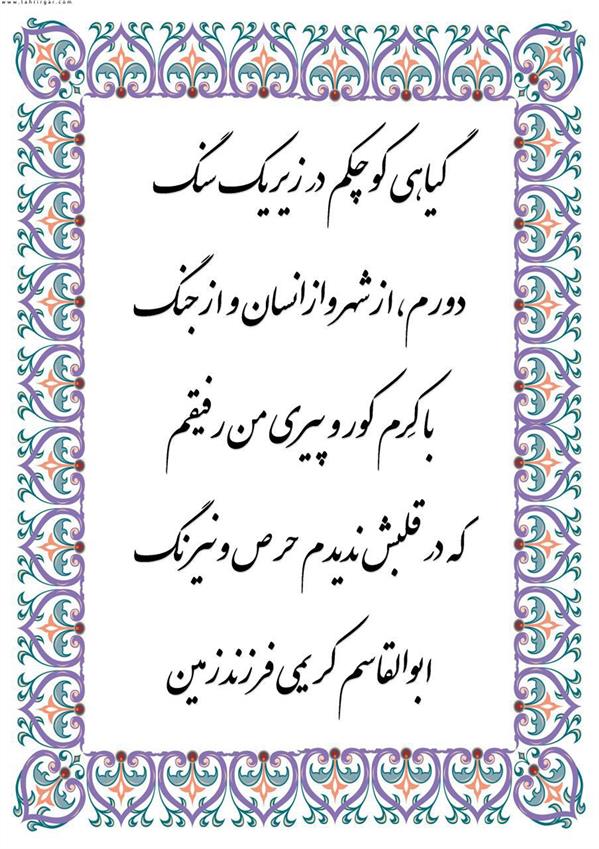 www.tahrirgar.com
گیاهی کوچکم در زیر یک سنگ
دورم، از شهر و از انسان و از جنگ
با کِرم کور و پیری من رفیقم
که در قلبش ندیدم حرص و نیرنگ
ابوالقاسم کریمی فرزند زمین